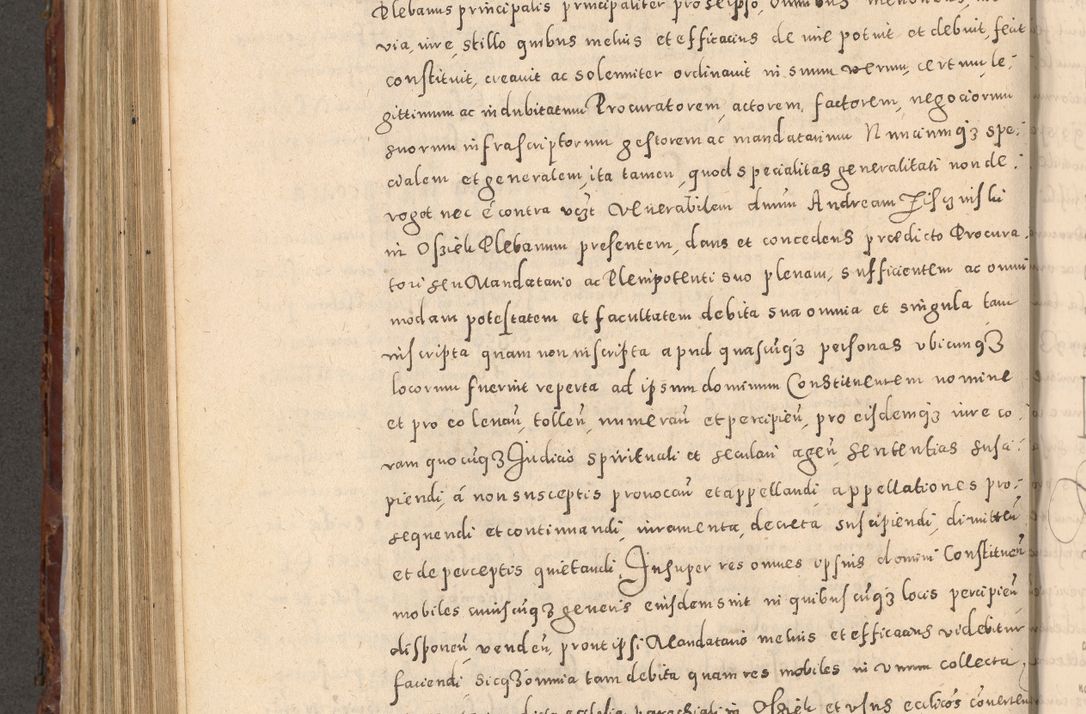 Plebanus principalis principaliter pro se ipso, omnibus melioribus,
via, iure, stillo quibus melius et efficacius de iure potuit et debuit, fecit
constituit, creauit ac solenniter ordinauit in suum verum, certum, le-
gittimum ac indubitatum Procuratorem, actorem, factorem, negociorum
suorum infrascriptorum gestorem ac mandatarium Nunciumq3 spe-
cialem et generalem, ita tamen, quod specialitas generalitati non de-
roget nec è contra vczt Venerabilem dnum Andream
in Osziek Plebanum presentem, dans et concedens praedicto Procura-
tori seu Mandatario ac Plenipotenti suo plenam, sufficientem ac omni
modam potestatem et facultatem debita sua omnia et singula tam
inscripta quam non inscripta apud quascuq3 personas vbicunq3
locorum fuerint reperta ad ipsum dominum Constituentem nomine
et pro eo leuan̄, tollen̄, numeran̄ et percipien̄, pro eisdemq3 iure co-
ram quocuq3 Judicio spirituali et seculari agen̄, sententias susci-
piendi, à non susceptis prouocan̄ et appellandi appellationes pro-
sequendi et continuandi, iuramenta, decreta suscipiendi, dimitten̄
et de perceptis quietandi. Insuper res omnes ipsius domini Constituen̄
mobiles cuiuscuq3 generis eiusdem sint in quibuscuq3 locis percipien̄
disponen̄ venden̄, prout ipsi Mandatario melius et efficacius videbitur
faciendi sicq3 omnia tam debita quam res mobiles in vnum collecta,
ecclesia parochiali in Osziek et vsus ecclicos conuerten